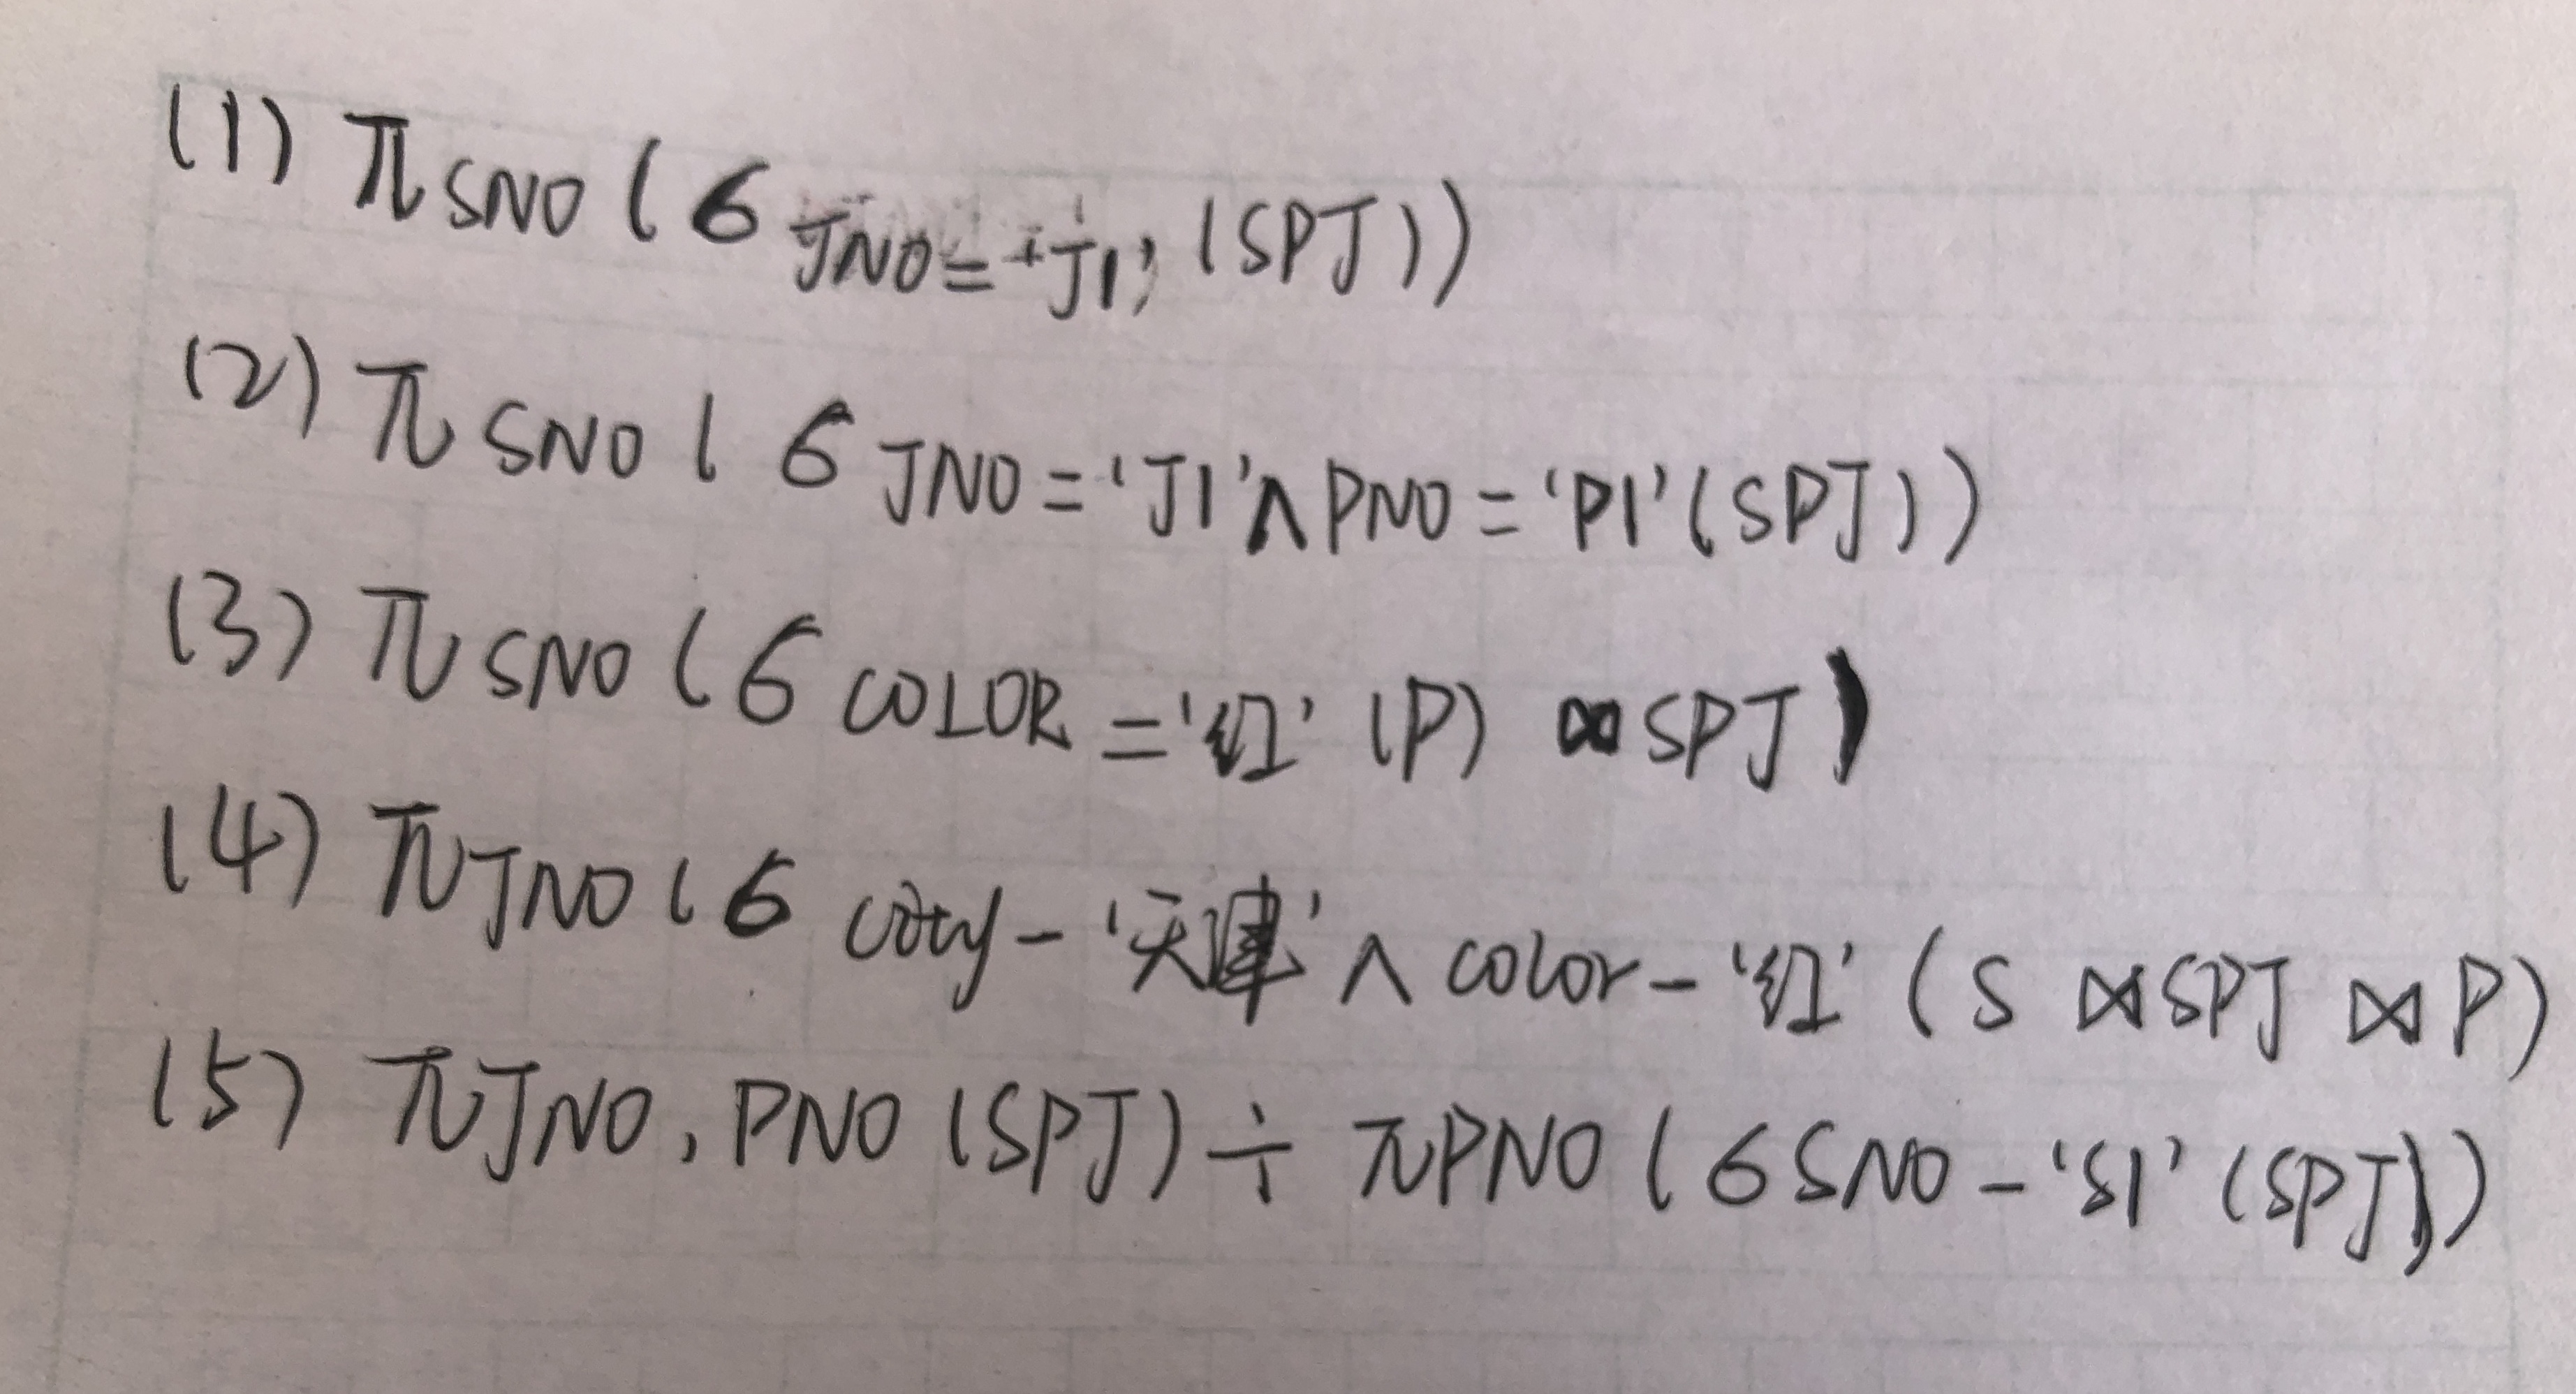 (1) π SNO (6 JNO='J1' (SPJ))
(2) π SNO ( 6 JNO='J1'∧PNO='P1'(SPJ))
(3) π SNO (6 COLOR='红' (P) ⋈SPJ)
(4) π JNO (6 city-'天津'∧ color-'红' (S ⋈SPJ ⋈P)
(5) π JNO, PNO (SPJ) ÷ πPNO (6SNO-'S1' (SPJ))